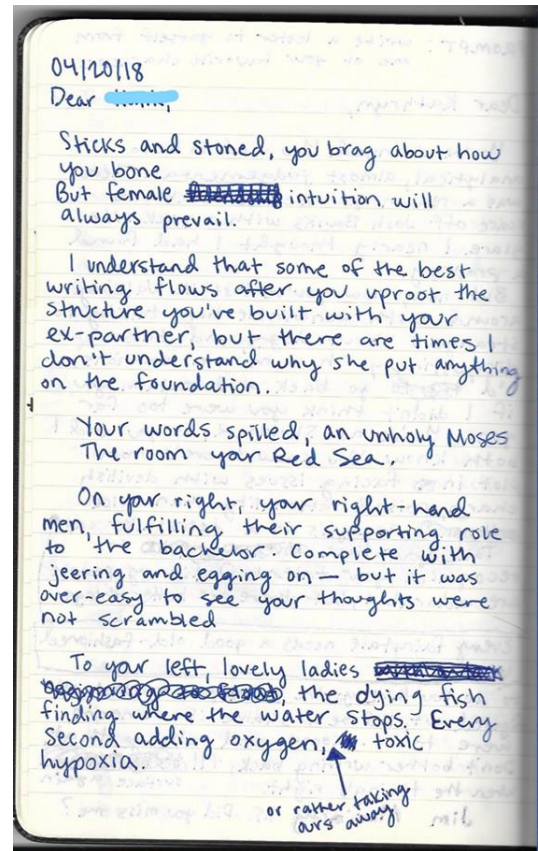 04/20/18
Dear
Sticks and stoned, you brag about how
you bone
But female intuition will
always prevail.
I understand that some of the best
writing flows after you uproot the
structure you've built with your
ex-partner, but there are times I
don't understand why she put anything
on the foundation.
Your words spilled, an unholy Moses
The room your Red Sea.
On your right, your right-hand
men, fulfilling their supporting role
to the bachelor. Complete with
jeering and egging on — but it was
over-easy to see your thoughts were
not scrambled
To your left, lovely ladies
, the dying fish
finding where the water stops. Every
second adding oxygen, toxic
hypoxia.
or rather taking
ours away